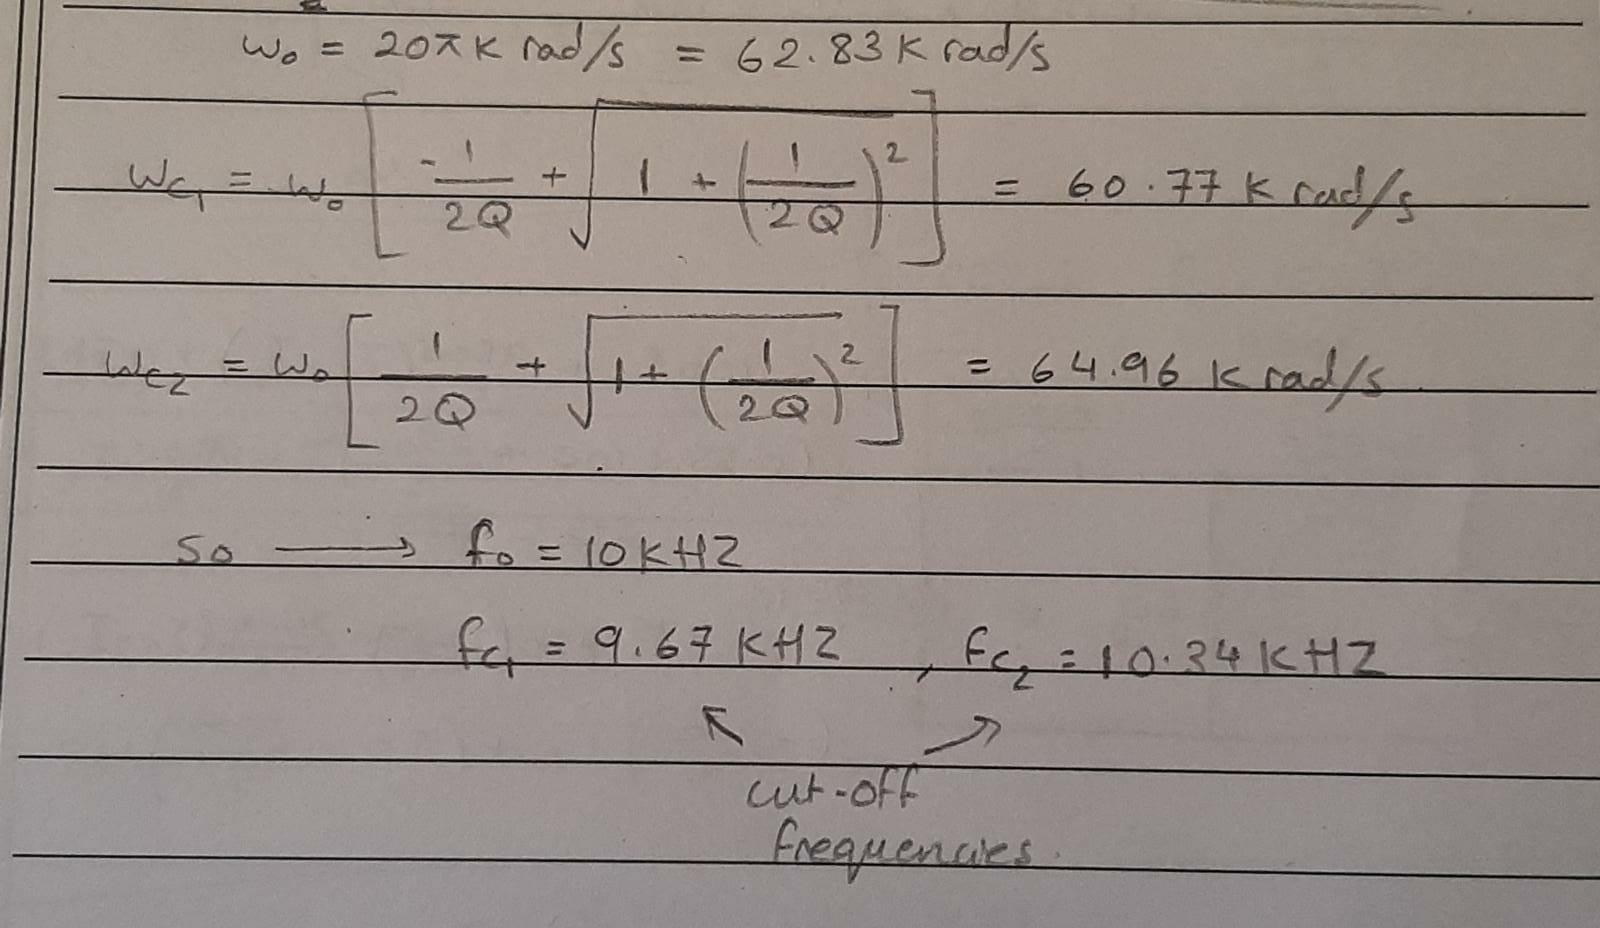 w₀ = 20πK rad/s = 62.83 K rad/s
wc₁ = w₀ [ -1/2Q + √(1 + (1/2Q)²) ] = 60.77 K rad/s
wc₂ = w₀ [ 1/2Q + √(1 + (1/2Q)²) ] = 64.96 K rad/s
so → f₀ = 10 KHZ
fc₁ = 9.67 KHZ , fc₂ = 10.34 KHZ
cut-off
frequencies.